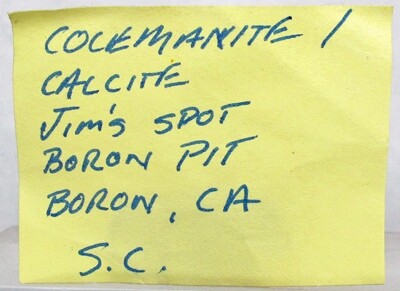 COLEMANITE /
CALCITE
Jim's SPOT
BORON PIT
BORON, CA
S.C.